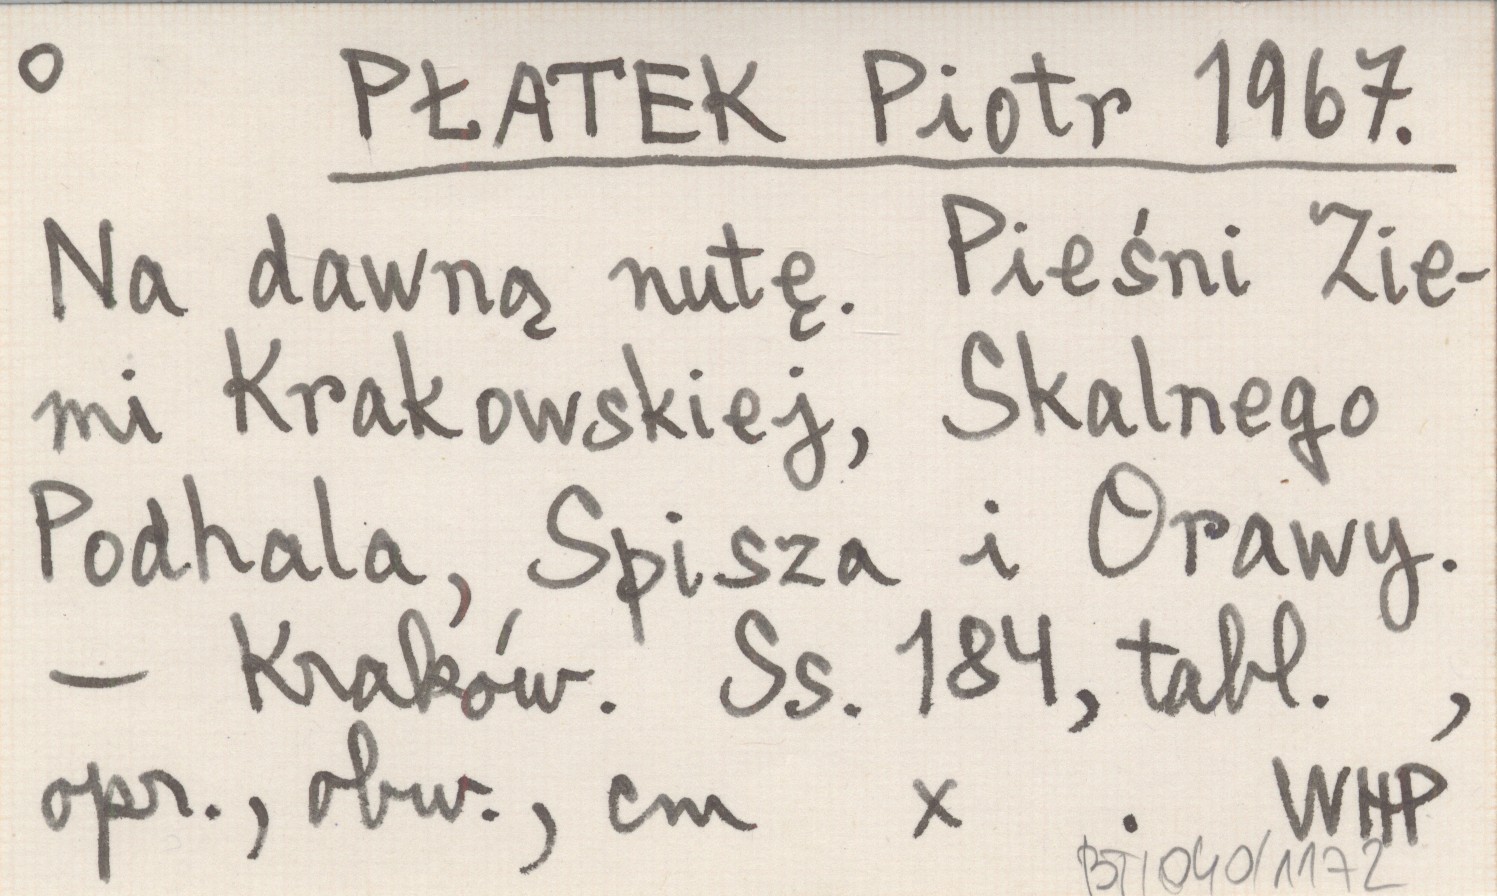 ° PŁATEK Piotr 1967.
Na dawną nutę. Pieśni Zie-
mi Krakowskiej, Skalnego
Podhala, Spisza i Orawy.
— Kraków. Ss. 184, tabl. ,
opr., obw., cm x . WHP
BT/040/1172